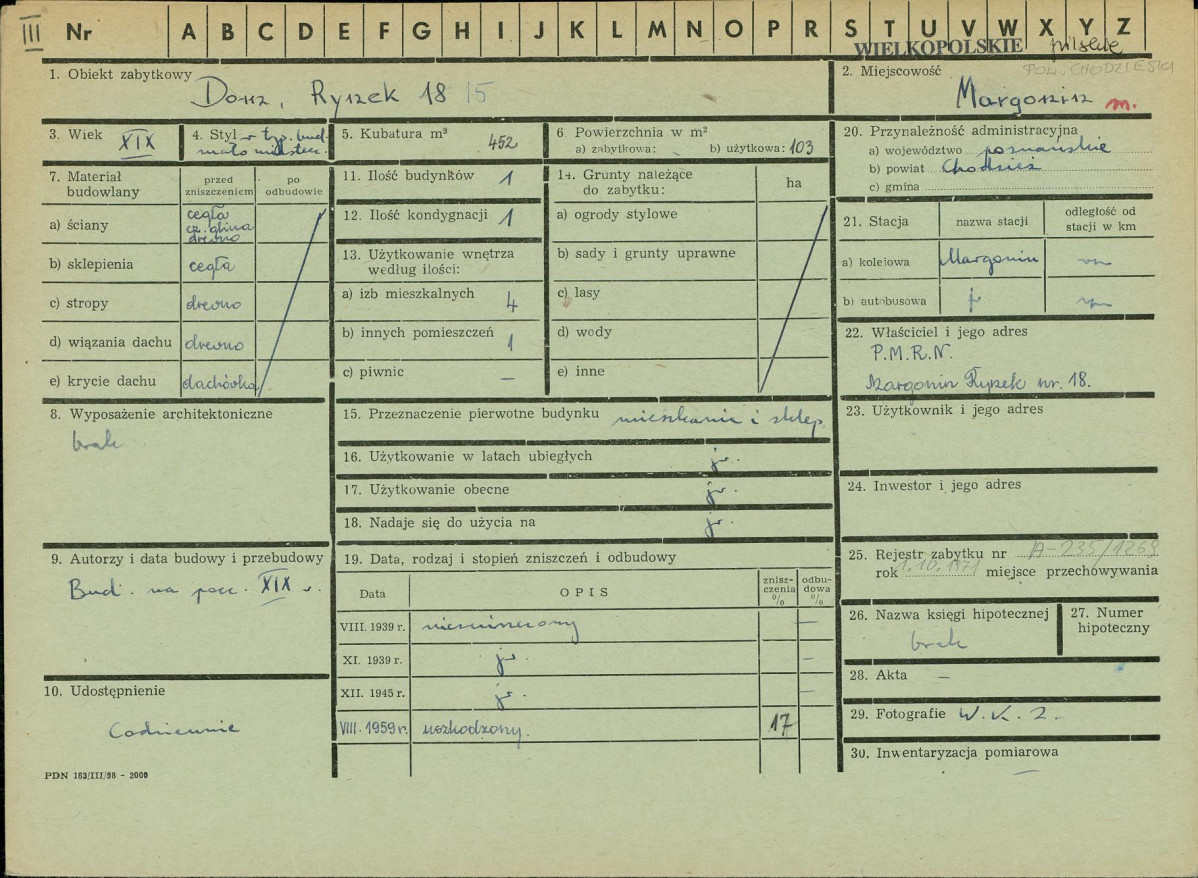 III Nr A B C D E F G H I J K L M N O P R S T U V W X Y Z
WIELKOPOLSKIE pilskie
POW. CHODZIESKI
1. Obiekt zabytkowy Dom, Rynek 18 15
2. Miejscowość Margonin m.
3. Wiek XIX
4. Styl w typ. bud.
mało miastecz.
5. Kubatura m³ 452
6 Powierzchnia w m²
a) zabytkowa: b) użytkowa: 103
7. Materiał budowlany
przed zniszczeniem
po odbudowie
a) ściany cegła
cz. glina
drewno
b) sklepienia cegła
c) stropy drewno
d) wiązania dachu drewno
e) krycie dachu dachówka
8. Wyposażenie architektoniczne
brak
9. Autorzy i data budowy i przebudowy
Bud. na pocz. XIX w.
10. Udostępnienie
Codziennie
PDN 183/III/58 - 2000
11. Ilość budynków 1
12. Ilość kondygnacji 1
13. Użytkowanie wnętrza
według ilości:
a) izb mieszkalnych 4
b) innych pomieszczeń 1
c) piwnic —
14. Grunty należące
do zabytku:
ha
a) ogrody stylowe
b) sady i grunty uprawne
c) lasy
d) wody
e) inne
15. Przeznaczenie pierwotne budynku mieszkanie i sklep
16. Użytkowanie w latach ubiegłych jw.
17. Użytkowanie obecne jw.
18. Nadaje się do użycia na jw.
19. Data, rodzaj i stopień zniszczeń i odbudowy
Data
OPIS
znisz-
czenia
%
odbu-
dowa
%
VIII. 1939 r. niezniszczony —
XI. 1939 r. jw. —
XII. 1945 r. jw. —
VIII. 1959 r. uszkodzony. 17
20. Przynależność administracyjna
a) województwo poznańskie
b) powiat Chodzież
c) gmina
21. Stacja
nazwa stacji
odległość od
stacji w km
a) kolejowa Margonin
b) autobusowa jw
22. Właściciel i jego adres
P.M.R.N.
Margonin Rynek nr. 18.
23. Użytkownik i jego adres
24. Inwestor i jego adres
25. Rejestr zabytku nr A-235/1269
rok 1.10.1971 miejsce przechowywania
26. Nazwa księgi hipotecznej
brak
27. Numer
hipoteczny
28. Akta —
29. Fotografie W.K.Z.
30. Inwentaryzacja pomiarowa
—